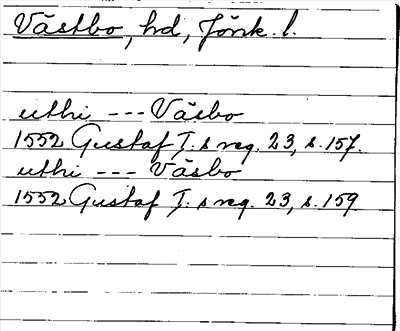 Västbo, hd, Jönk. l.
uthi --- Väsbo
1552 Gustaf I. s reg. 23, s. 157.
uthi --- Väsbo
1552 Gustaf I. s reg. 23, s. 159